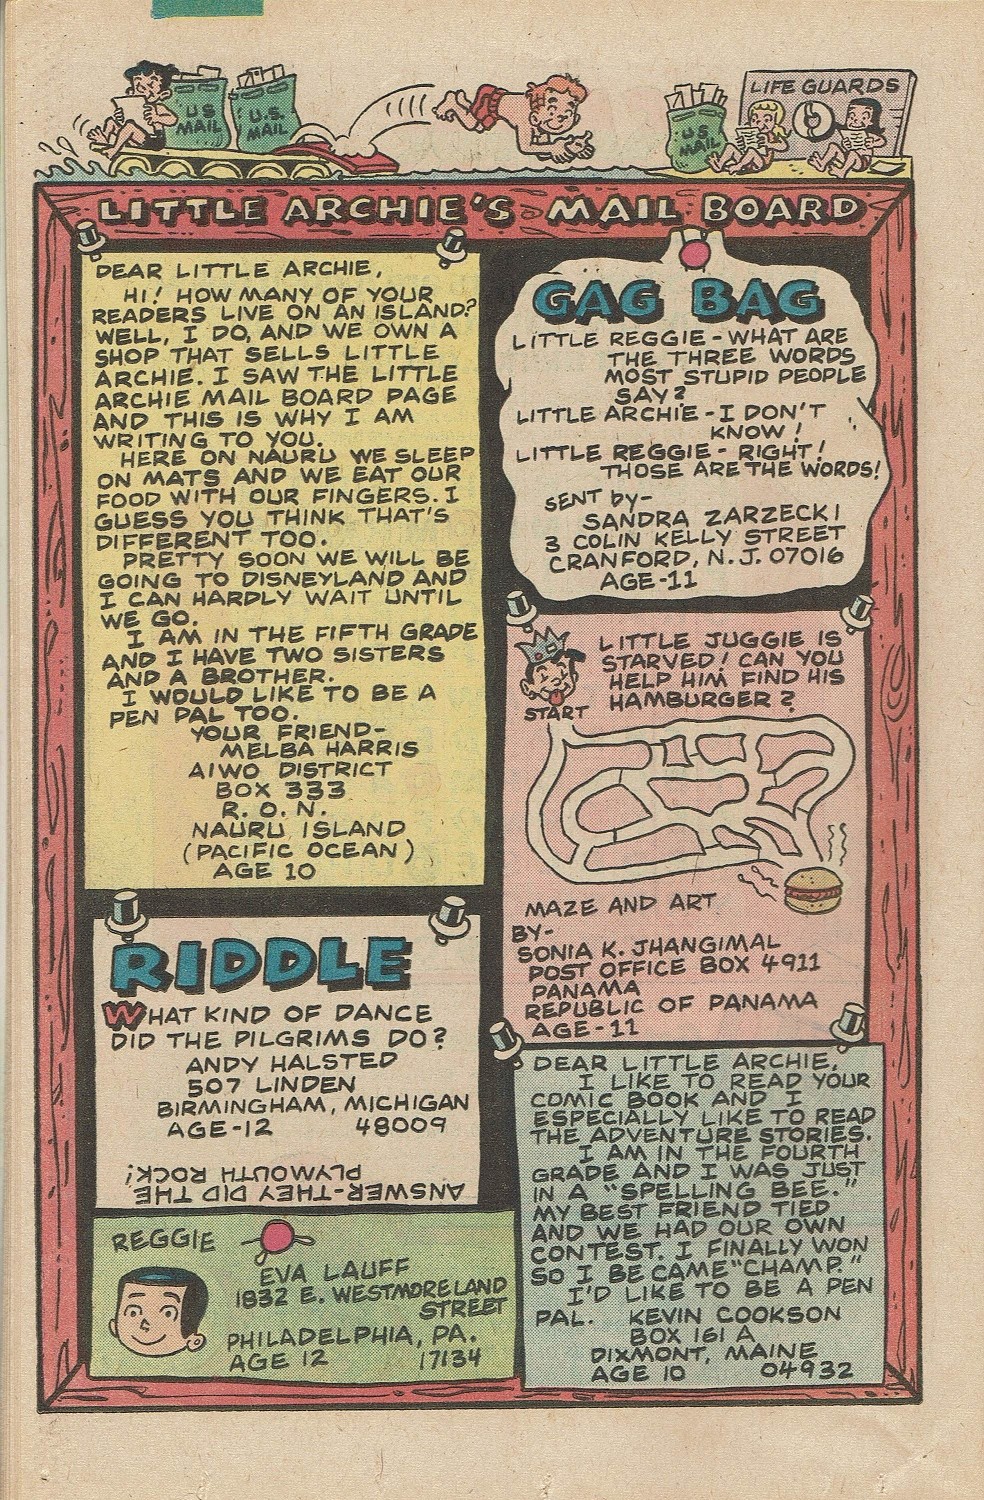 US
MAIL
U.S.
MAIL
U.S.
MAIL
LIFE GUARDS
LITTLE ARCHIE'S MAIL BOARD
DEAR LITTLE ARCHIE,
HI! HOW MANY OF YOUR
READERS LIVE ON AN ISLAND?
WELL, I DO, AND WE OWN A
SHOP THAT SELLS LITTLE
ARCHIE. I SAW THE LITTLE
ARCHIE MAIL BOARD PAGE
AND THIS IS WHY I AM
WRITING TO YOU.
HERE ON NAURU WE SLEEP
ON MATS AND WE EAT OUR
FOOD WITH OUR FINGERS. I
GUESS YOU THINK THAT'S
DIFFERENT TOO.
PRETTY SOON WE WILL BE
GOING TO DISNEYLAND AND
I CAN HARDLY WAIT UNTIL
WE GO.
I AM IN THE FIFTH GRADE
AND I HAVE TWO SISTERS
AND A BROTHER.
I WOULD LIKE TO BE A
PEN PAL TOO.
YOUR FRIEND-
MELBA HARRIS
AIWO DISTRICT
BOX 333
R. O. N.
NAURU ISLAND
(PACIFIC OCEAN)
AGE 10
RIDDLE
WHAT KIND OF DANCE
DID THE PILGRIMS DO?
ANDY HALSTED
507 LINDEN
BIRMINGHAM, MICHIGAN
AGE-12 48009
ANSWER-THEY DID THE
PLYMOUTH ROCK!
REGGIE
EVA LAUFF
1832 E. WESTMORELAND
STREET
PHILADELPHIA, PA.
AGE 12 17134
GAG BAG
LITTLE REGGIE-WHAT ARE
THE THREE WORDS
MOST STUPID PEOPLE
SAY?
LITTLE ARCHIE-I DON'T
KNOW!
LITTLE REGGIE-RIGHT!
THOSE ARE THE WORDS!
SENT by-
SANDRA ZARZECKI
3 COLIN KELLY STREET
CRANFORD, N.J. 07016
AGE-11
LITTLE JUGGIE IS
STARVED! CAN YOU
HELP HIM FIND HIS
HAMBURGER?
START
MAZE AND ART
BY-
SONIA K. JHANGIMAL
POST OFFICE BOX 4911
PANAMA
REPUBLIC OF PANAMA
AGE-11
DEAR LITTLE ARCHIE,
I LIKE TO READ YOUR
COMIC BOOK AND I
ESPECIALLY LIKE TO READ
THE ADVENTURE STORIES.
I AM IN THE FOURTH
GRADE AND I WAS JUST
IN A "SPELLING BEE."
MY BEST FRIEND TIED
AND WE HAD OUR OWN
CONTEST. I FINALLY WON
SO I BECAME "CHAMP."
I'D LIKE TO BE A PEN
PAL. KEVIN COOKSON
BOX 161 A
DIXMONT, MAINE
AGE 10 04932